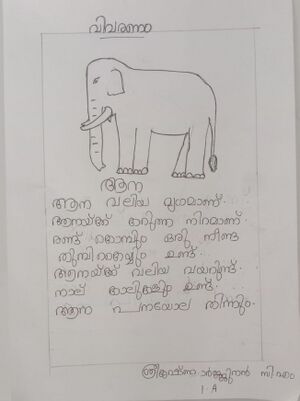 വിവരണം
ആന
ആന വലിയ മൃഗമാണ്.
ആനയ്ക്ക് കറുത്ത നിറമാണ്.
രണ്ട് കൊമ്പും ഒരു നീണ്ട
തുമ്പിക്കൈയ്യും ഉണ്ട്.
ആനയ്ക്ക് വലിയ വയറുണ്ട്.
നാല് കാലുകളും ഉണ്ട്.
ആന പനയോല തിന്നും.
1 A